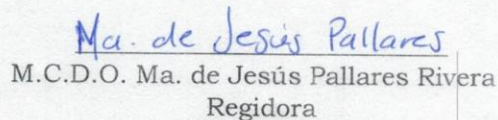 Ma. de Jesús Pallares
M.C.D.O. Ma. de Jesús Pallares Rivera
Regidora